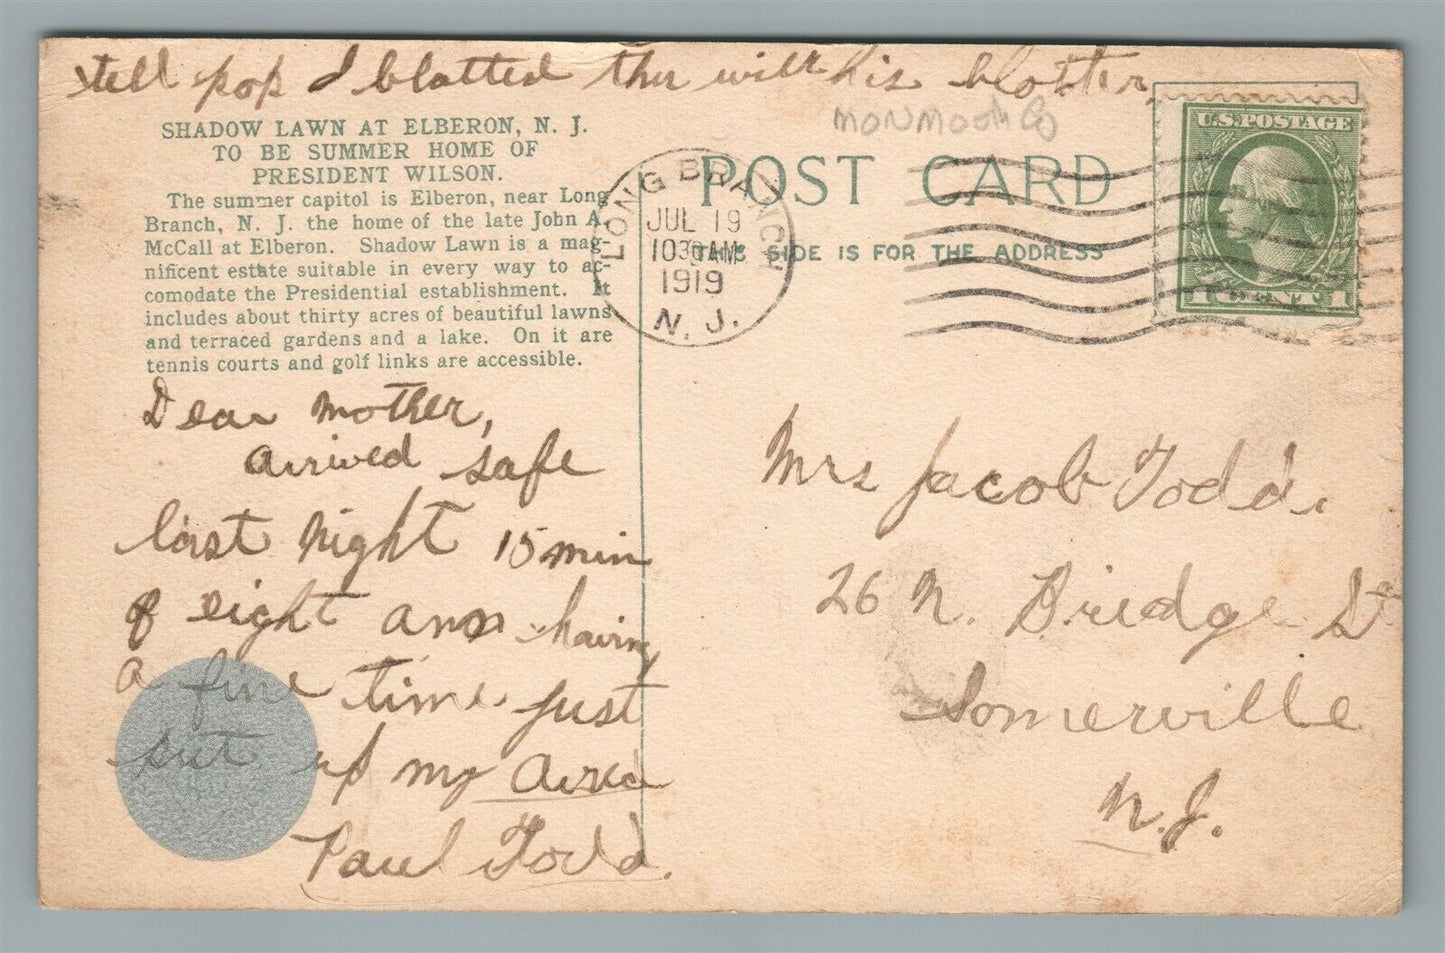 tell pop I blotted this with his blotter
MONMOOTH CO
SHADOW LAWN AT ELBERON, N. J.
TO BE SUMMER HOME OF
PRESIDENT WILSON.
The summer capitol is Elberon, near Long
Branch, N. J. the home of the late John A.
McCall at Elberon. Shadow Lawn is a mag-
nificent estate suitable in every way to ac-
comodate the Presidential establishment. It
includes about thirty acres of beautiful lawns
and terraced gardens and a lake. On it are
tennis courts and golf links are accessible.
LONG BRANCH
JUL 19
1030 AM
1919
N. J.
POST CARD
THIS SIDE IS FOR THE ADDRESS
U.S. POSTAGE
1 CENT 1
Dear Mother,
arrived safe
last night 15 min
of eight am having
a fine time just
set up my
Paul Todd.
Mrs Jacob Todd.
26 N. Bridge St
Somerville
N.J.